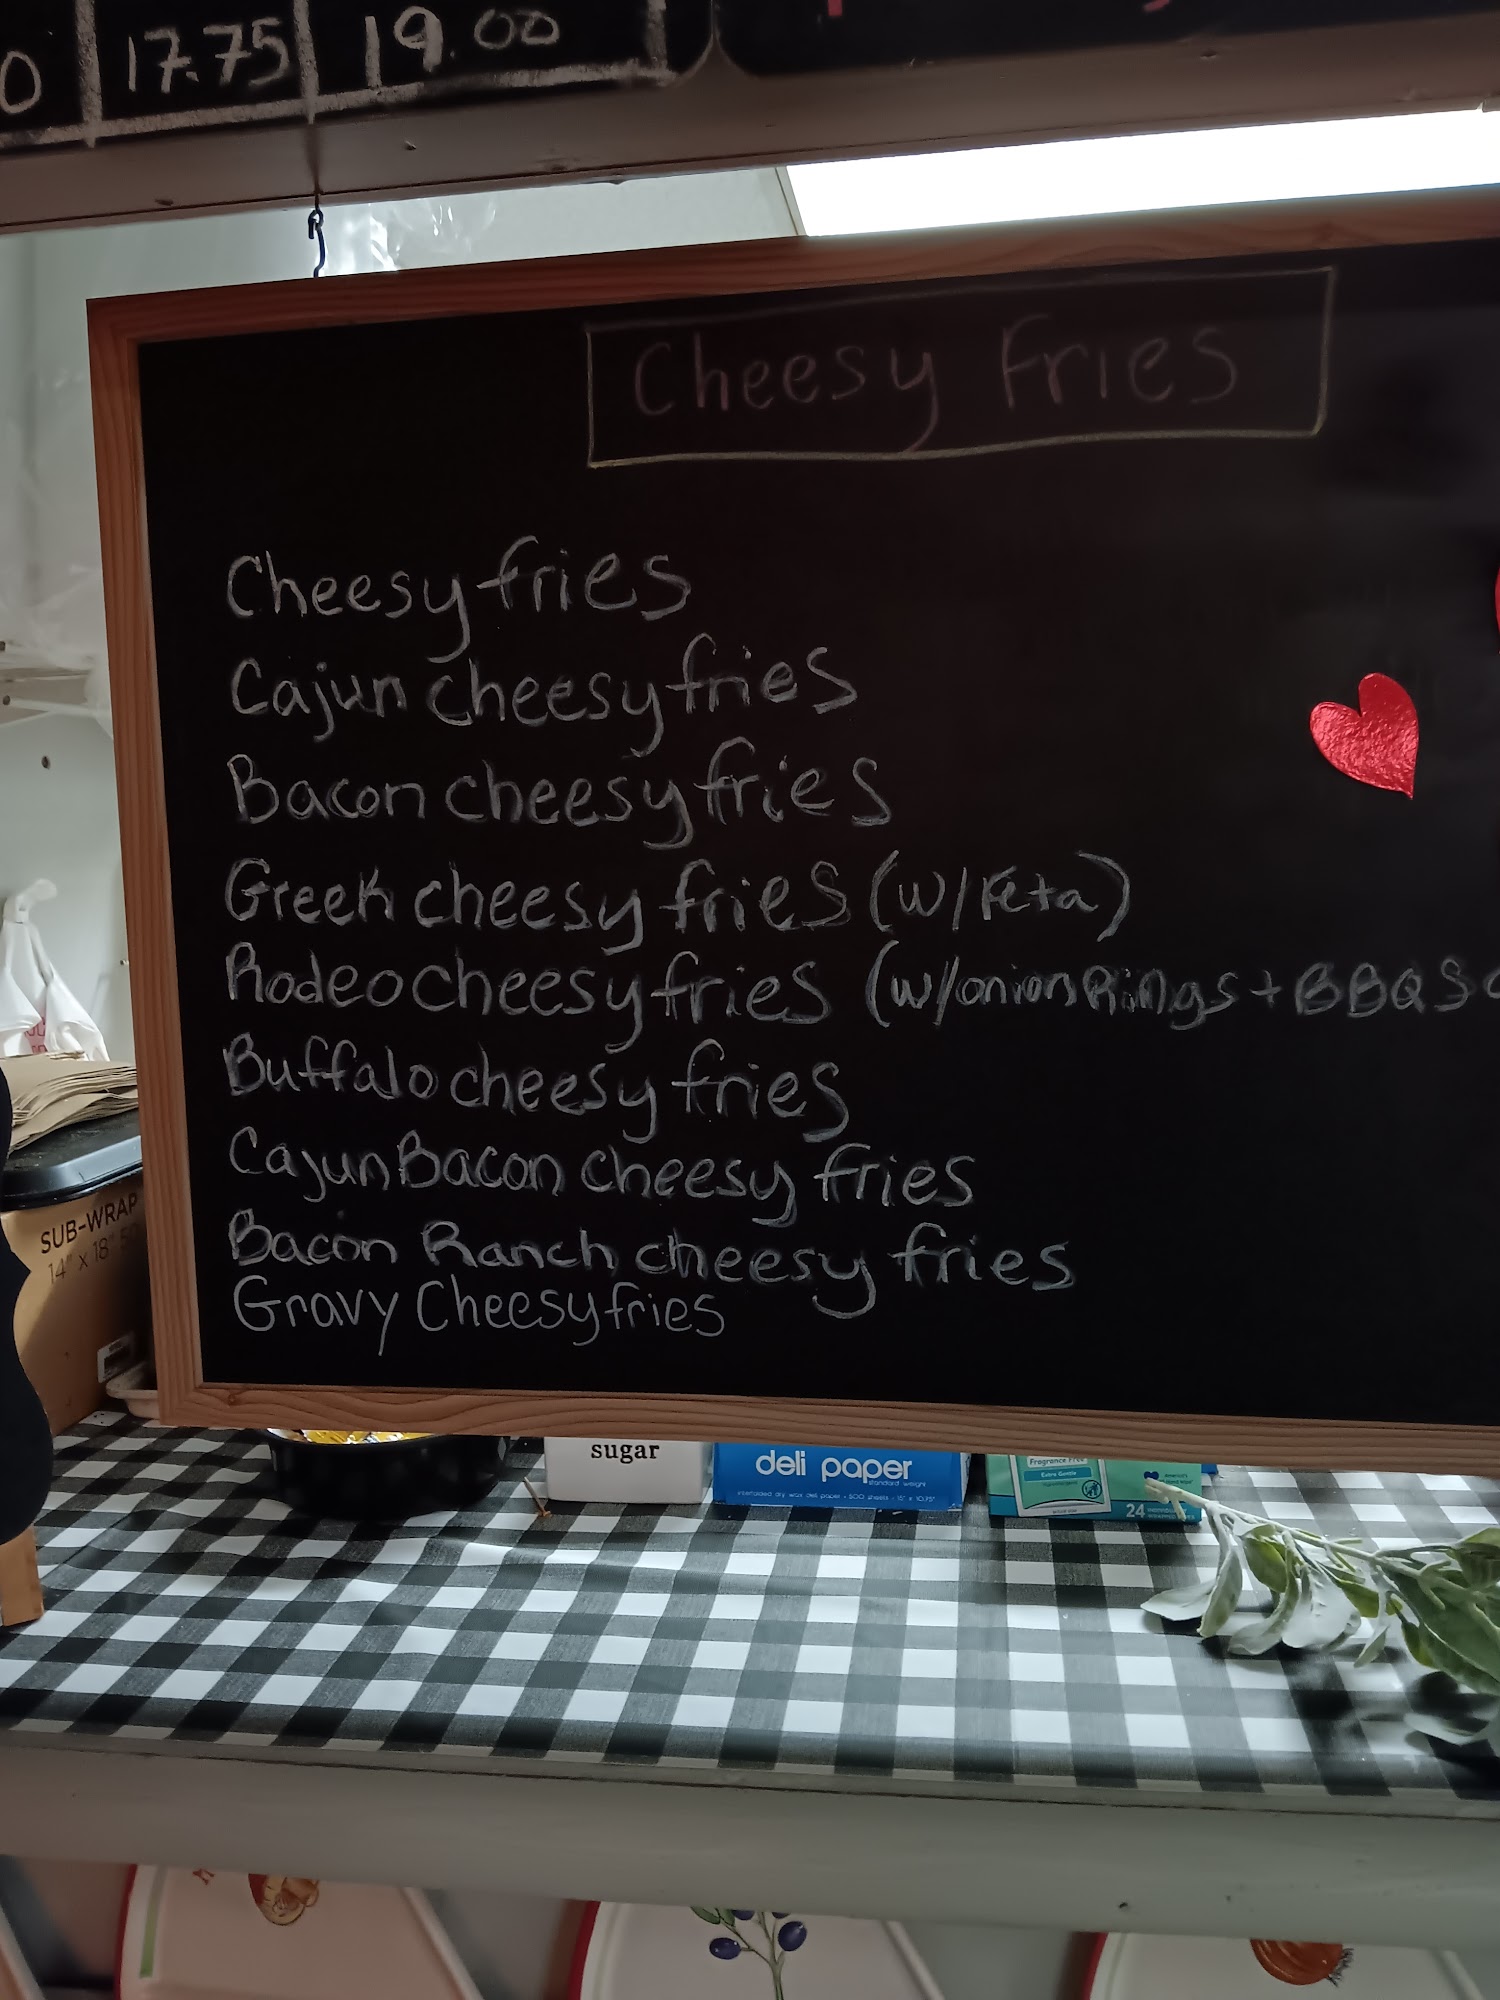 17.75 19.00
Cheesy Fries
Cheesy fries
Cajun cheesy fries
Bacon cheesy fries
Greek cheesy fries (w/Feta)
Rodeo cheesy fries (w/onion Rings + BBQ
Buffalo cheesy fries
Cajun Bacon cheesy fries
Bacon Ranch cheesy fries
Gravy Cheesy fries
SUB-WRAP
14" x 18"
sugar
deli paper
standard weight
interfolded dry wax deli paper • 500 sheets • 15" x 10.75"
Fragrance Free
Extra Gentle
24